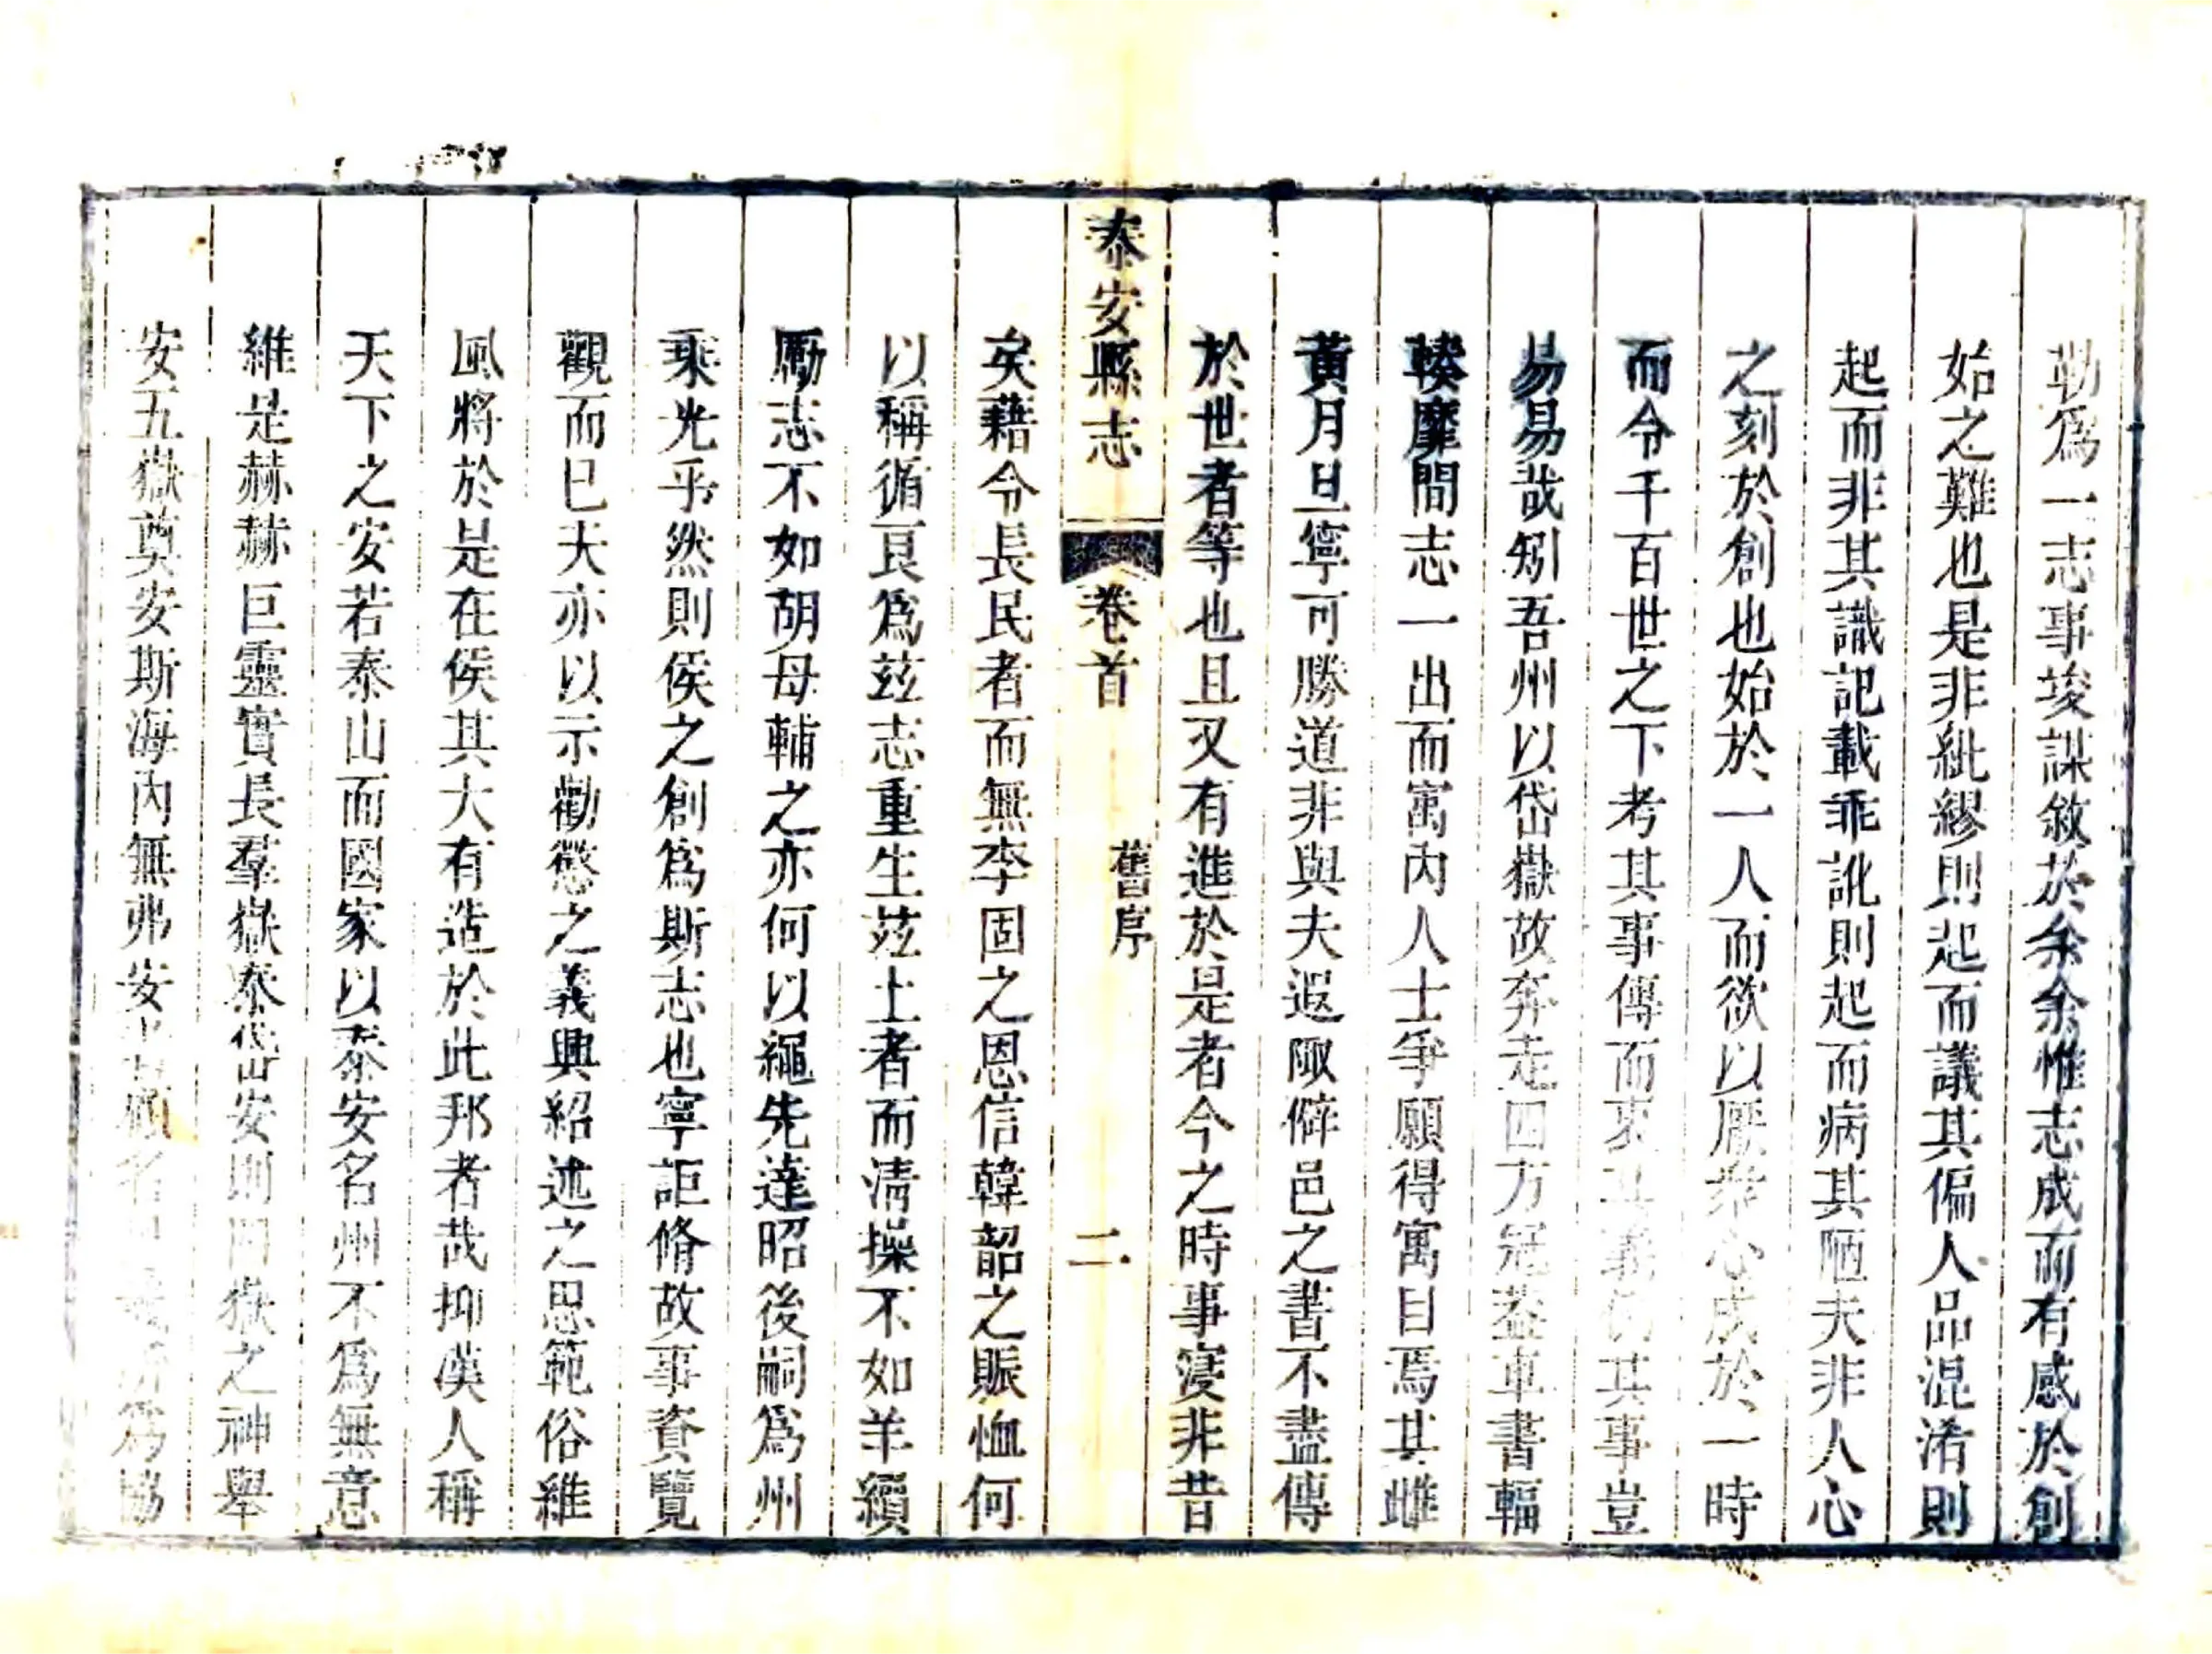 勒爲一志事竣謀敘於余余惟志成而有感於創
始之難也是非紕繆則起而議其偏人品混淆則
起而非其識記載乖訛則起而病其陋夫非人心
之刻於創也始於一人而欲以厭衆心成於一時
而令千百世之下考其事傳而其義仍其事豈
易易哉矧吾州以岱嶽故奔走四方冠蓋車書輻
輳摩間志一出而寓內人士爭願得寓目焉其雌
黃月旦寧可勝道非與夫遐陬僻邑之書不盡傳
於世者等也且又有進於是者今之時事寖非昔
泰安縣志
卷首
舊序
二
矣藉令長民者而無李固之恩信韓韶之賑恤何
以稱循良爲茲志重生茲土者而清操不如羊續
勵志不如胡母輔之亦何以繩先達昭後嗣爲州
乘光乎然則侯之創爲斯志也寧詎脩故事資覽
觀而已夫亦以示勸懲之義興紹述之思範俗維
風將於是在侯其大有造於此邦者哉抑漢人稱
天下之安若泰山而國家以泰安名州不爲無意
維是赫赫巨靈實長羣嶽泰岱安則四嶽之神舉
安五嶽奠安斯海內無弗安顧名義所爲協